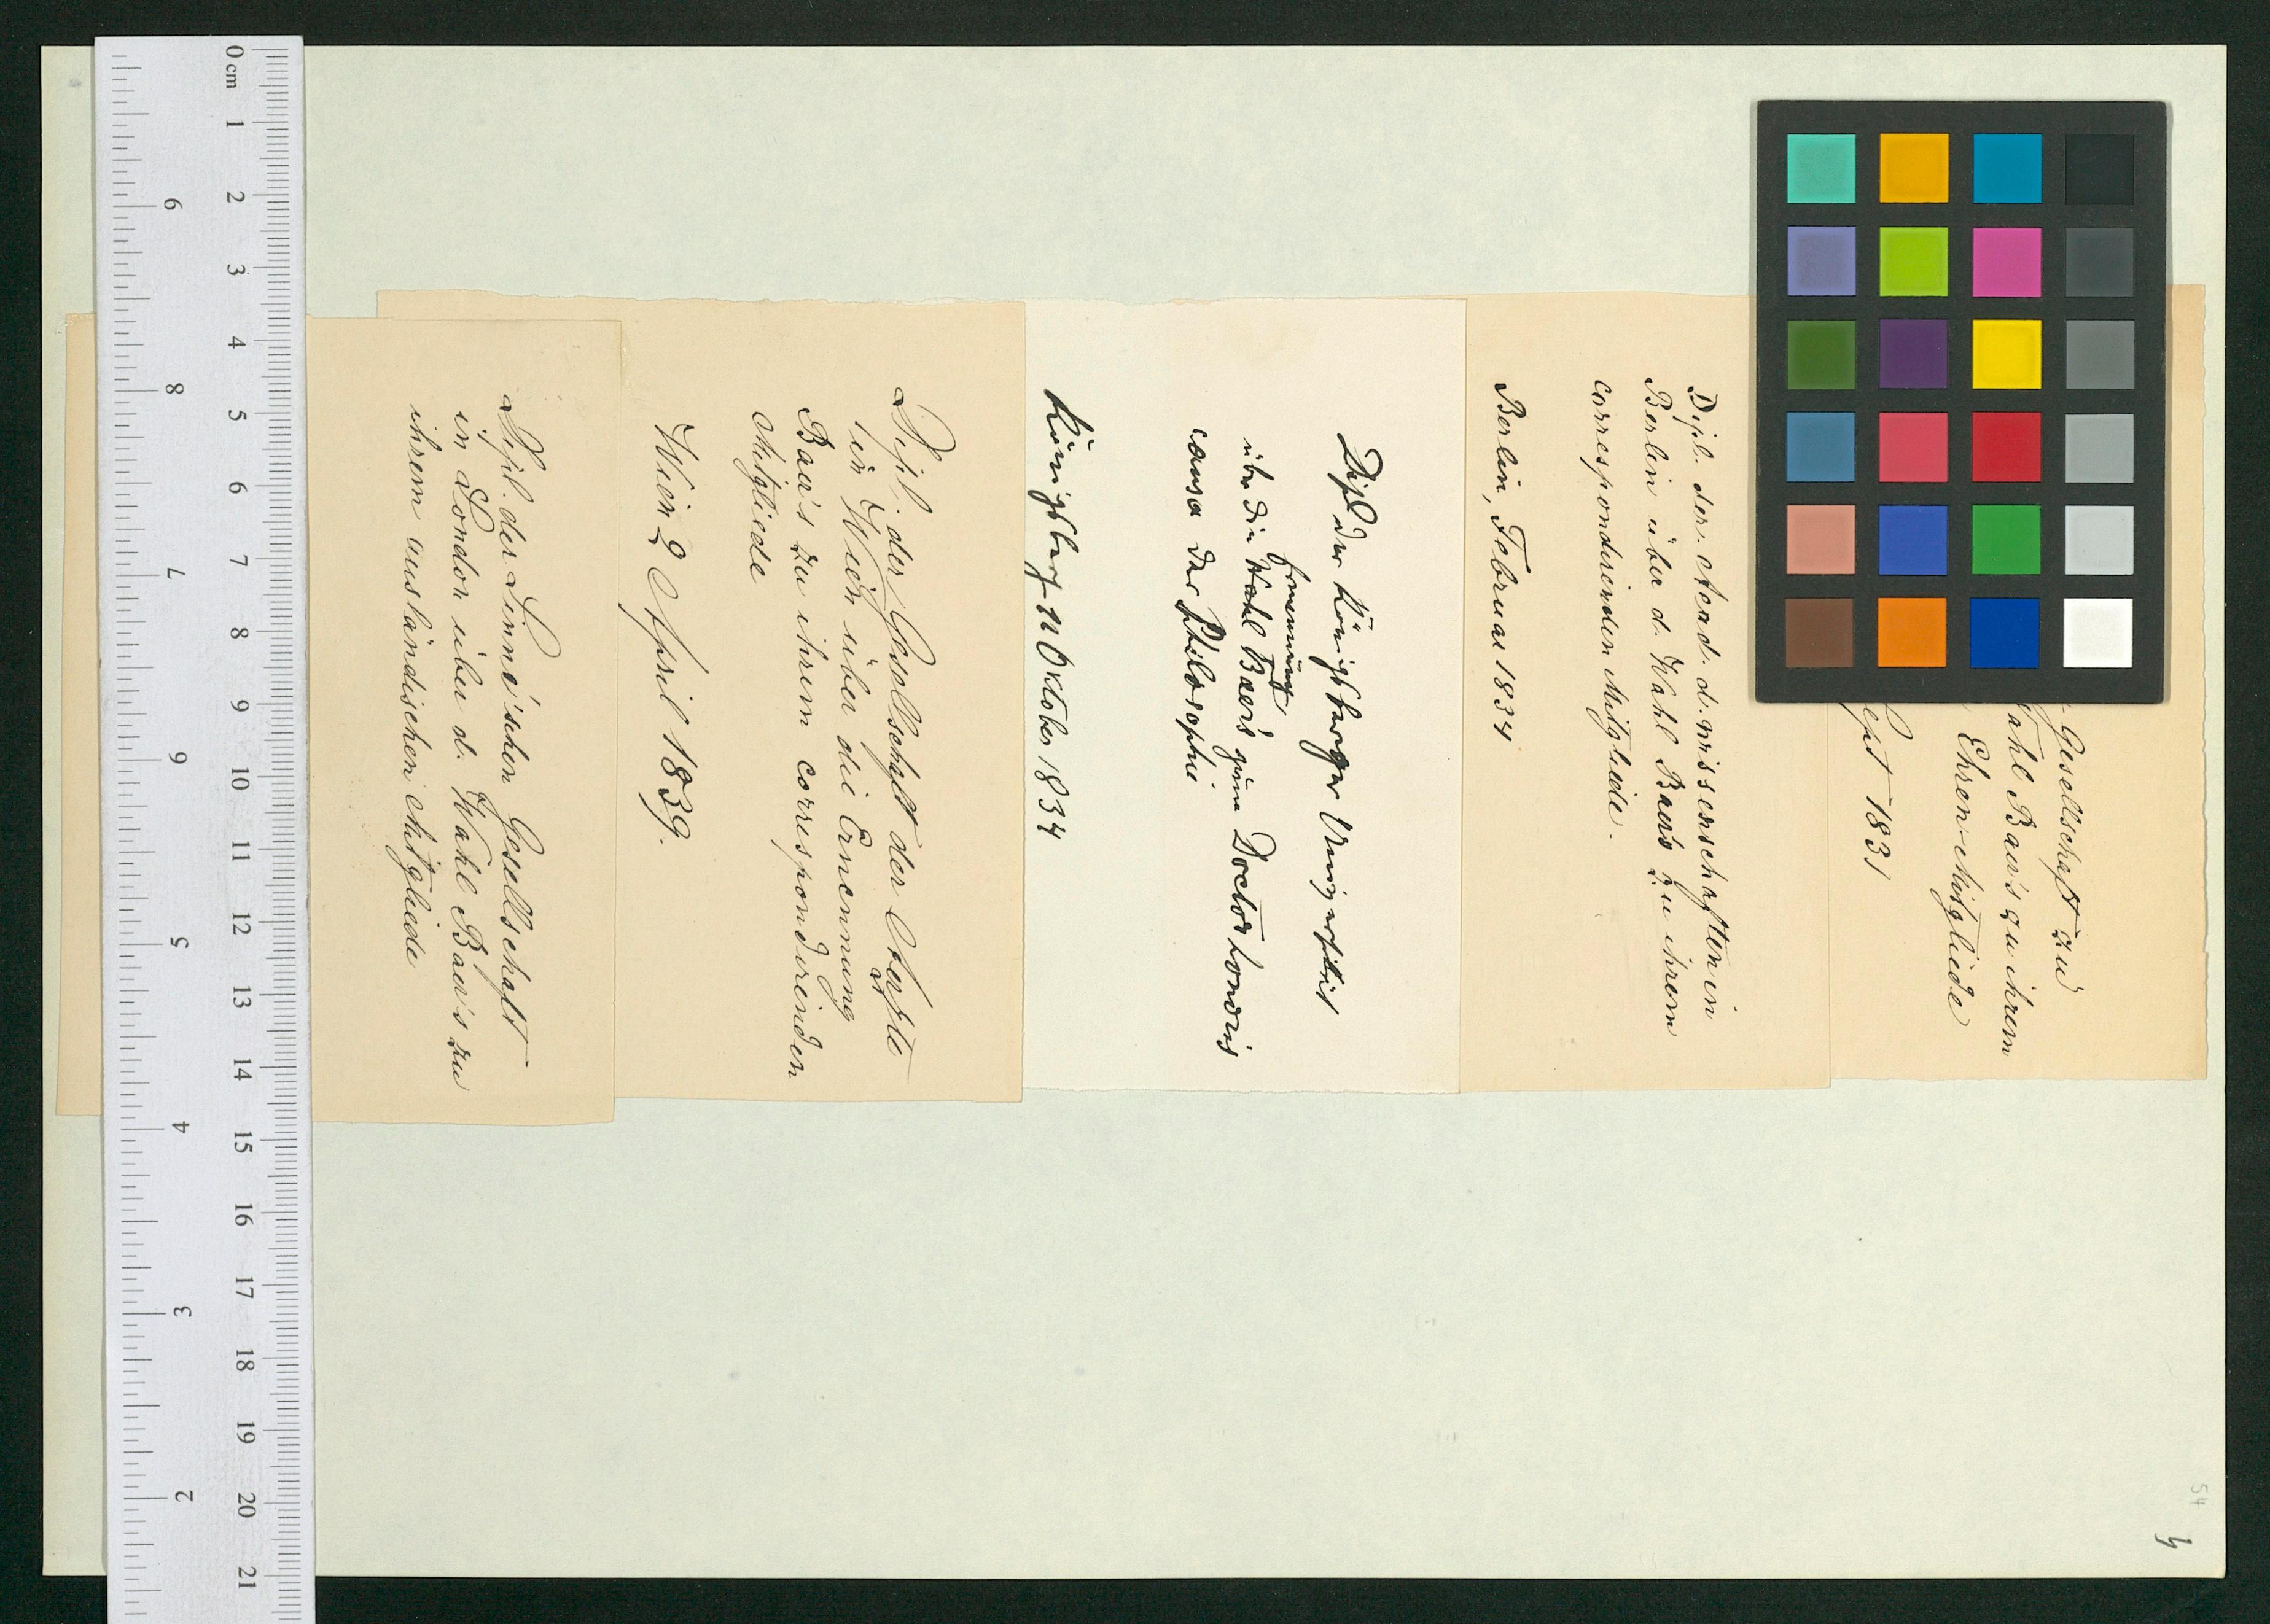 Gesellschaft zu
Wahl Baer's zu ihrem
Ehren-Mitgliede
Sept 1831
Dipl. der. Acad. d. wissenschaften in
Berlin über d. Wahl Baers zu ihrem
correspondirenden Mitgliede.
Berlin, Februar 1834
Dipl der Königsberger Universität
Ernennung
über die Wahl Baer's zum Doctor honoris
causa der Philosophie
Königsberg 11 Oktober 1834
Dipl. der Gesellschaft der Aerzte
in Wien über die Ernennung
Baer's zu ihrem correspondirenden
Mitgliede
Wien 2 April 1839.
Dipl. der Linné'schen Gesellschaft
in London über d. Wahl Baer's zu
ihrem ausländischen Mitgliede
0 cm 1 2 3 4 5 6 7 8 9 10 11 12 13 14 15 16 17 18 19 20 21
9 8 7 6 5 4 3 2
54
4